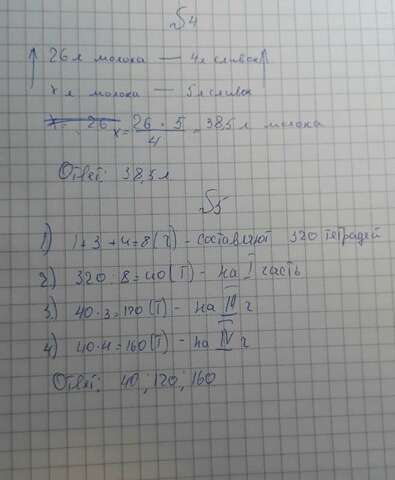 №4
26 л молока — 4 л сливок
x л молока — 5 л сливок
x = 26 · 5 / 4 = 38,5 л молока
Ответ: 38,5 л
№5
1) 1+3+4=8(ч) - составляют 320 тетрадей
2) 320 : 8=40(т) - на I часть
3) 40·3=120(т) - на III ч
4) 40·4=160(т) - на IV ч
Ответ: 40; 120; 160